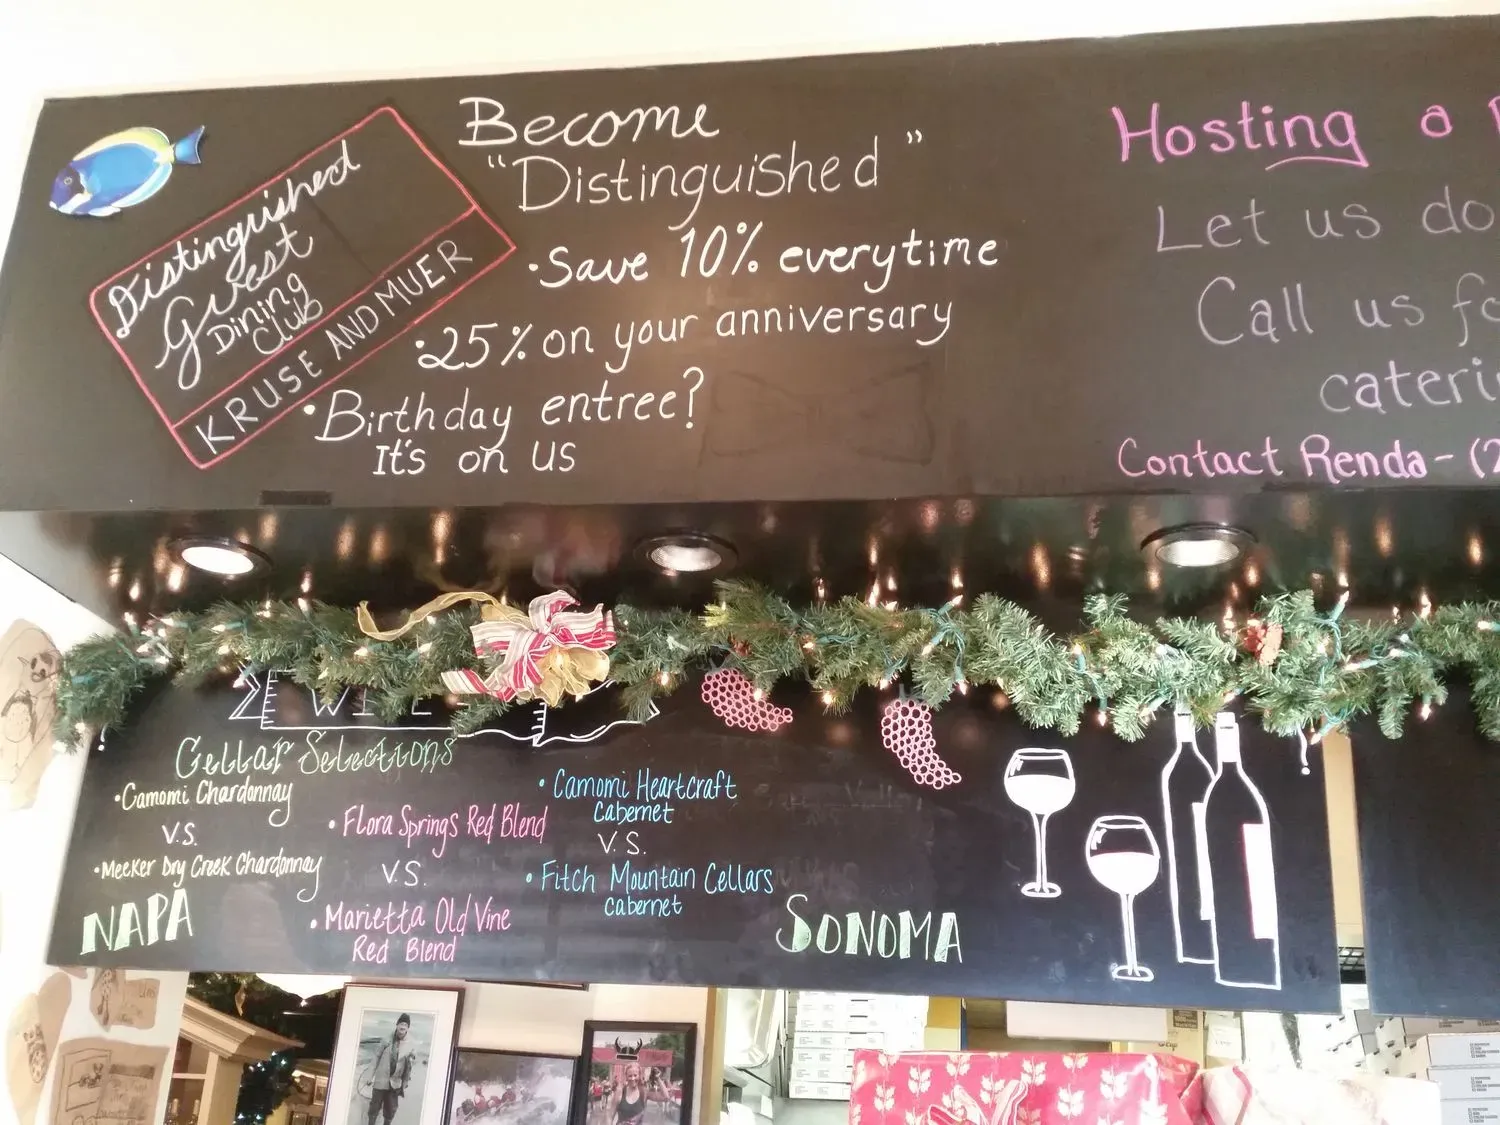 Distinguished
Guest
Dining
Club
KRUSE AND MUER
Become
"Distinguished"
•Save 10% everytime
•25% on your anniversary
•Birthday entree?
It's on us
Hosting a
Let us do
Call us
Contact Renda - (2
Cellar Selections
•Camomi Chardonnay
V.S.
•Meeker Dry Creek Chardonnay
•Flora Springs Red Blend
V.S.
•Marietta Old Vine
Red Blend
•Camomi Heartcraft
Cabernet
V.S.
•Fitch Mountain Cellars
cabernet
NAPA
SONOMA